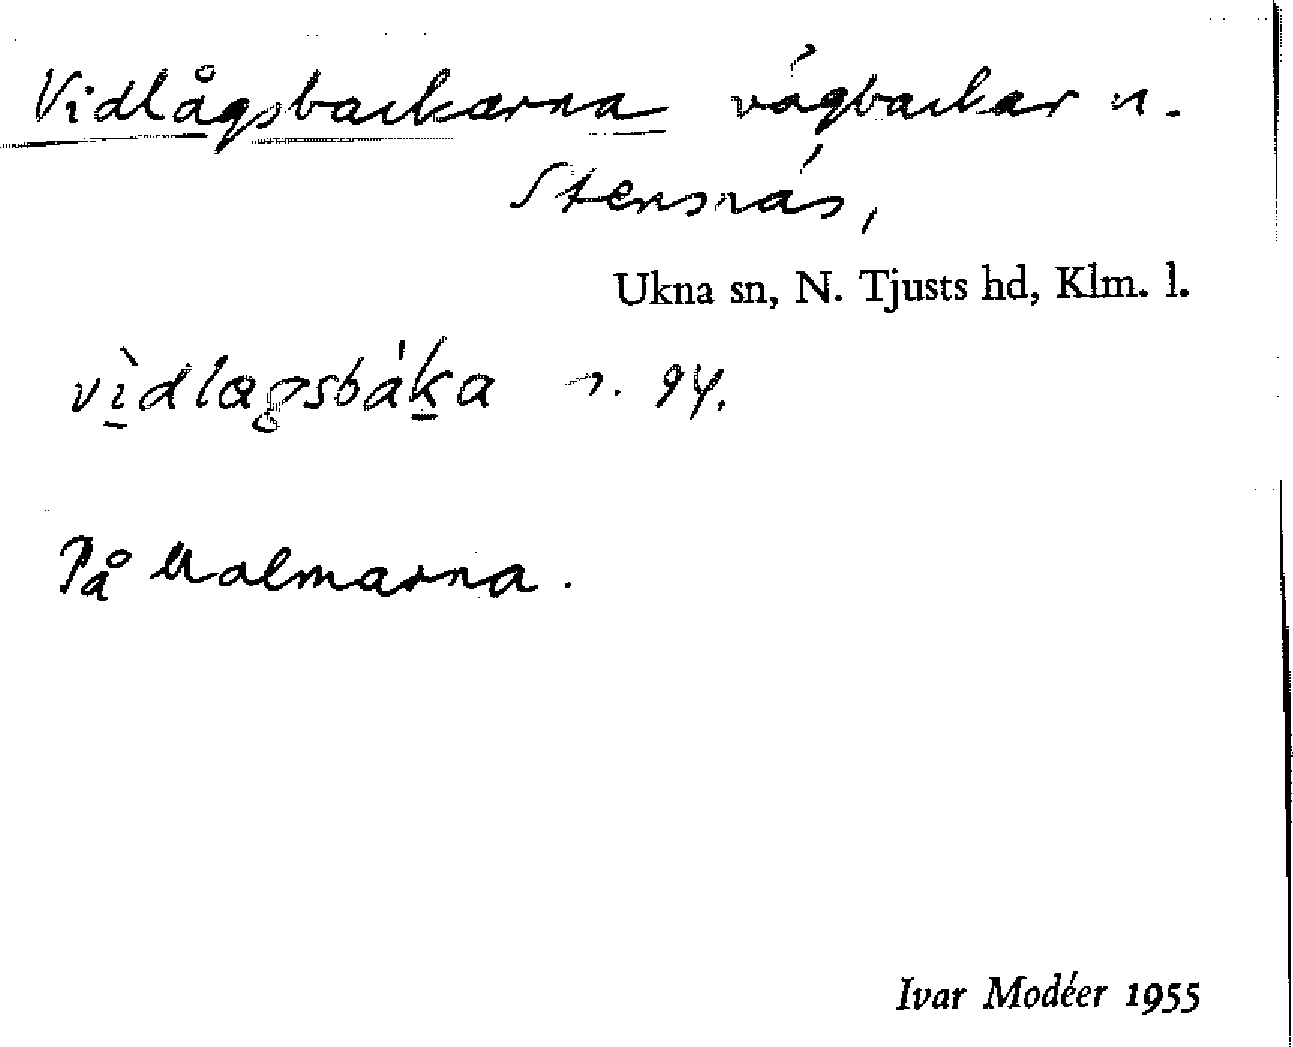 Vidlågsbackarna vägbackar n.
Stensnäs,
Ukna sn, N. Tjusts hd, Klm. l.
vìdlagsbáka s. 94.
På Malmarna.
Ivar Modéer 1955